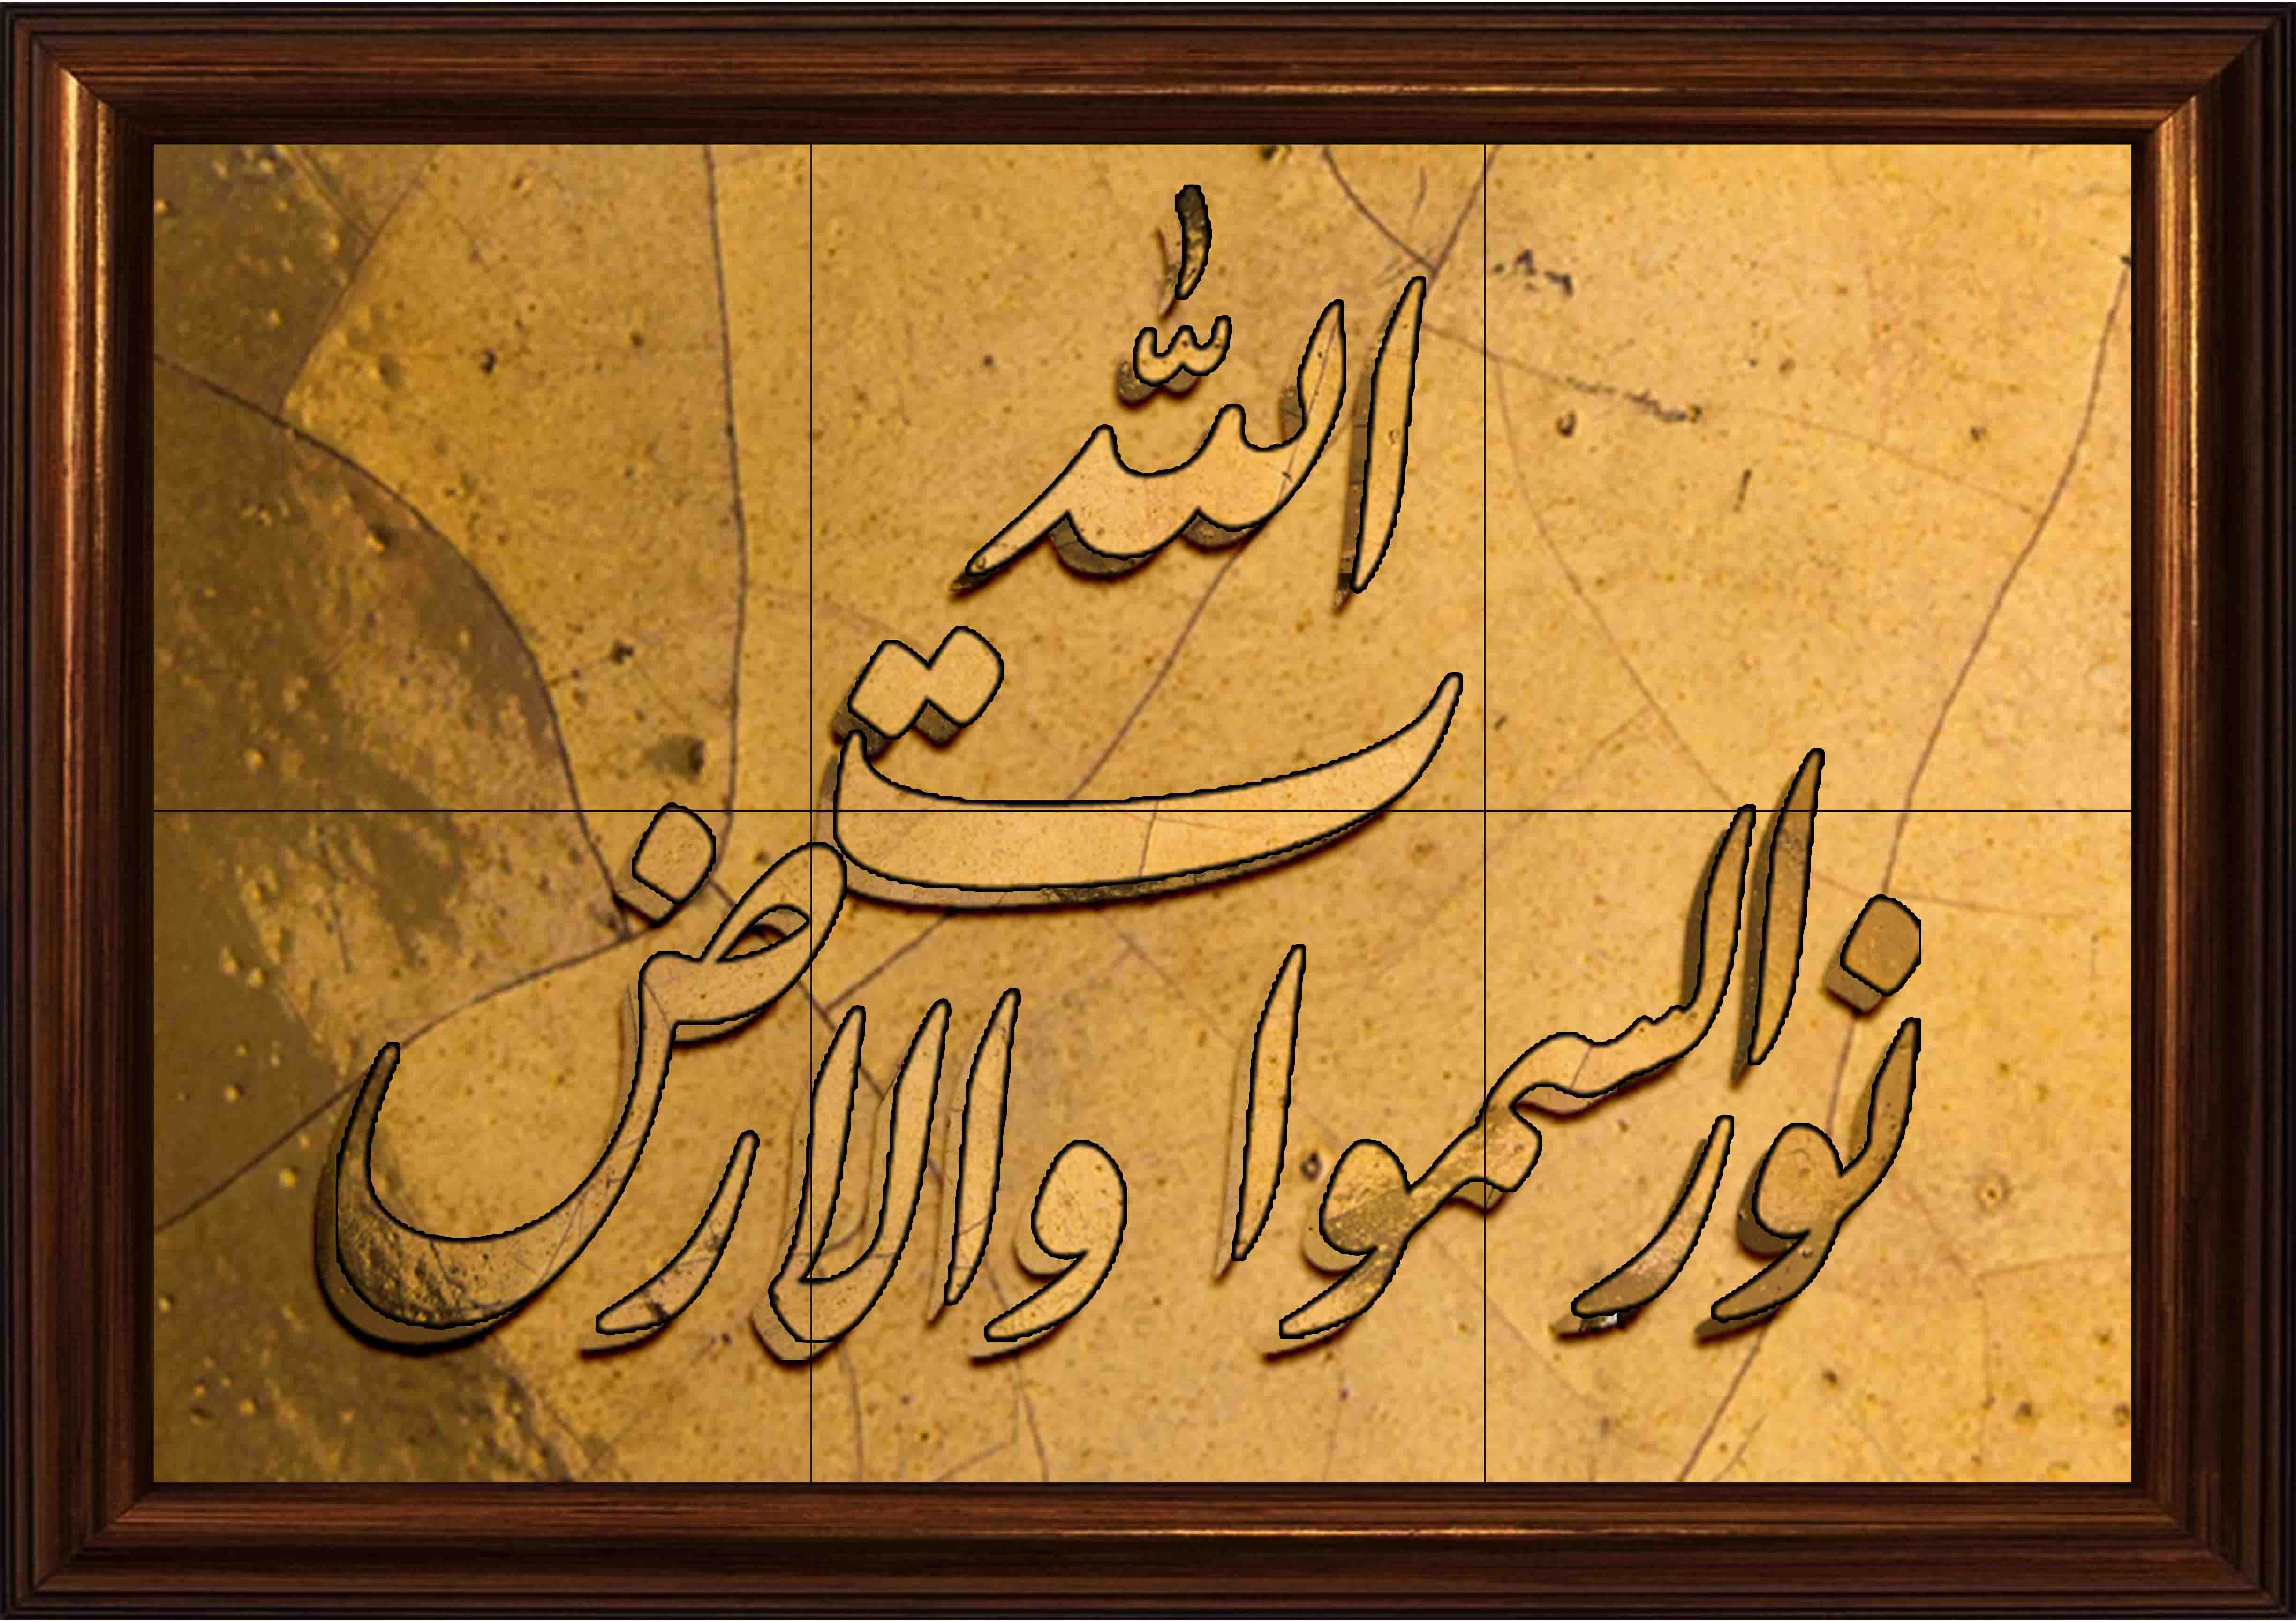 الله
نور السموات
والارض